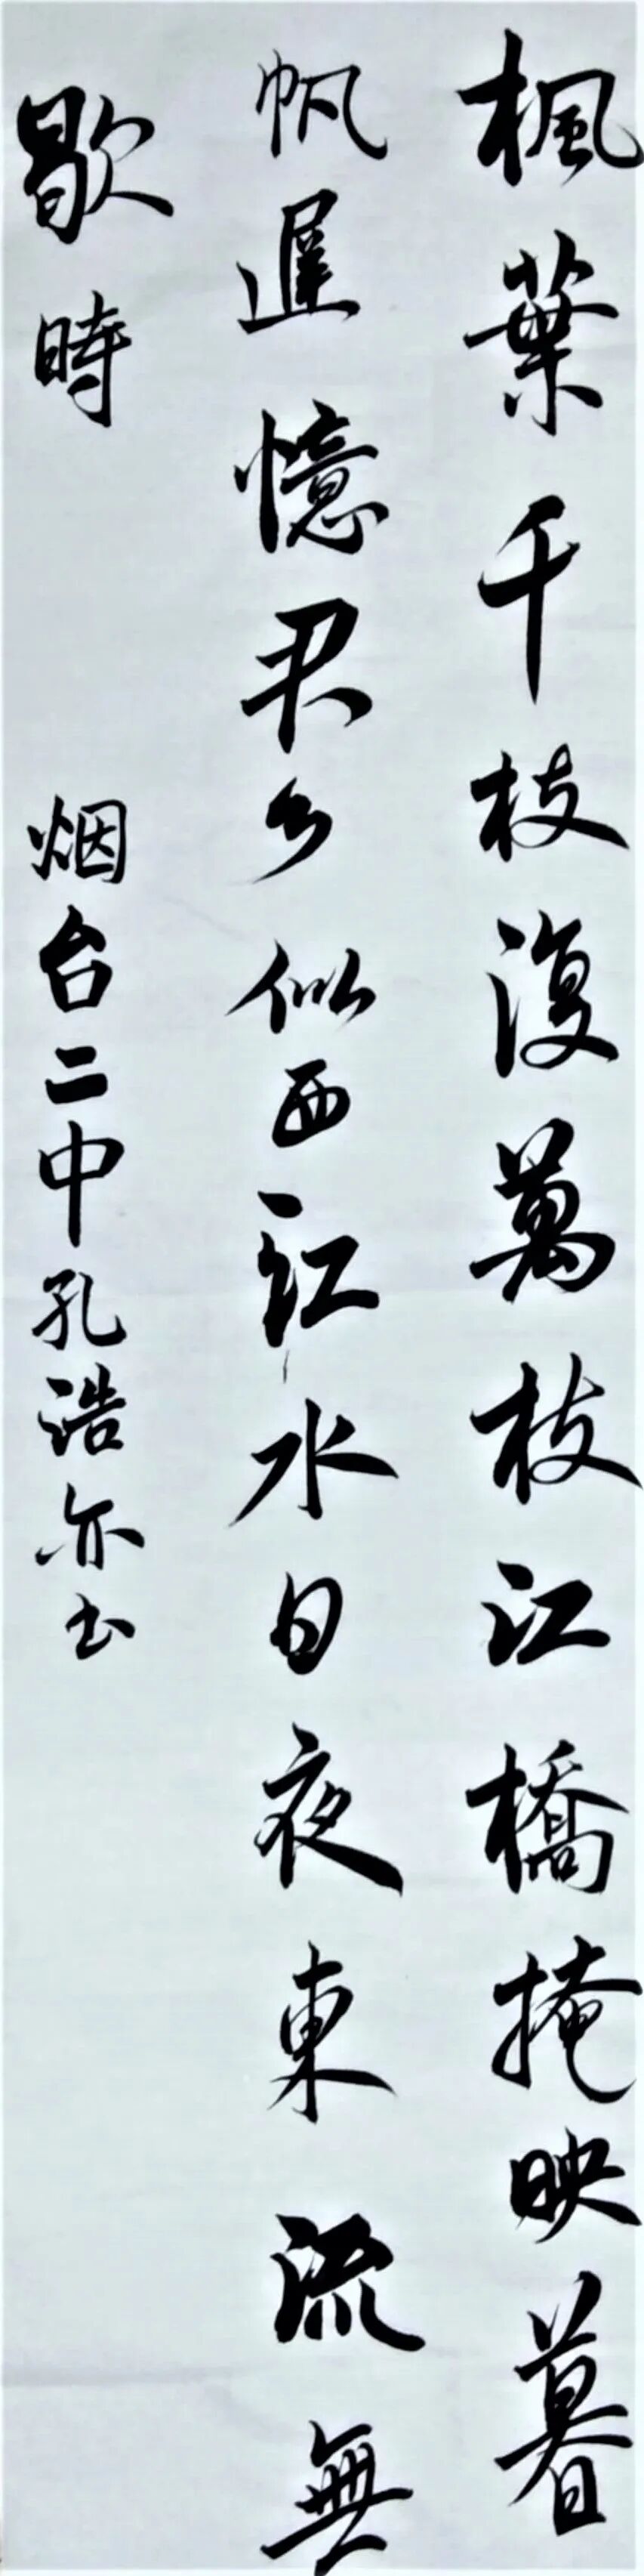 楓葉千枝復萬枝江橋掩映暮
帆遲憶君心似西江水日夜東流無
歇時 烟台二中孔浩亦书